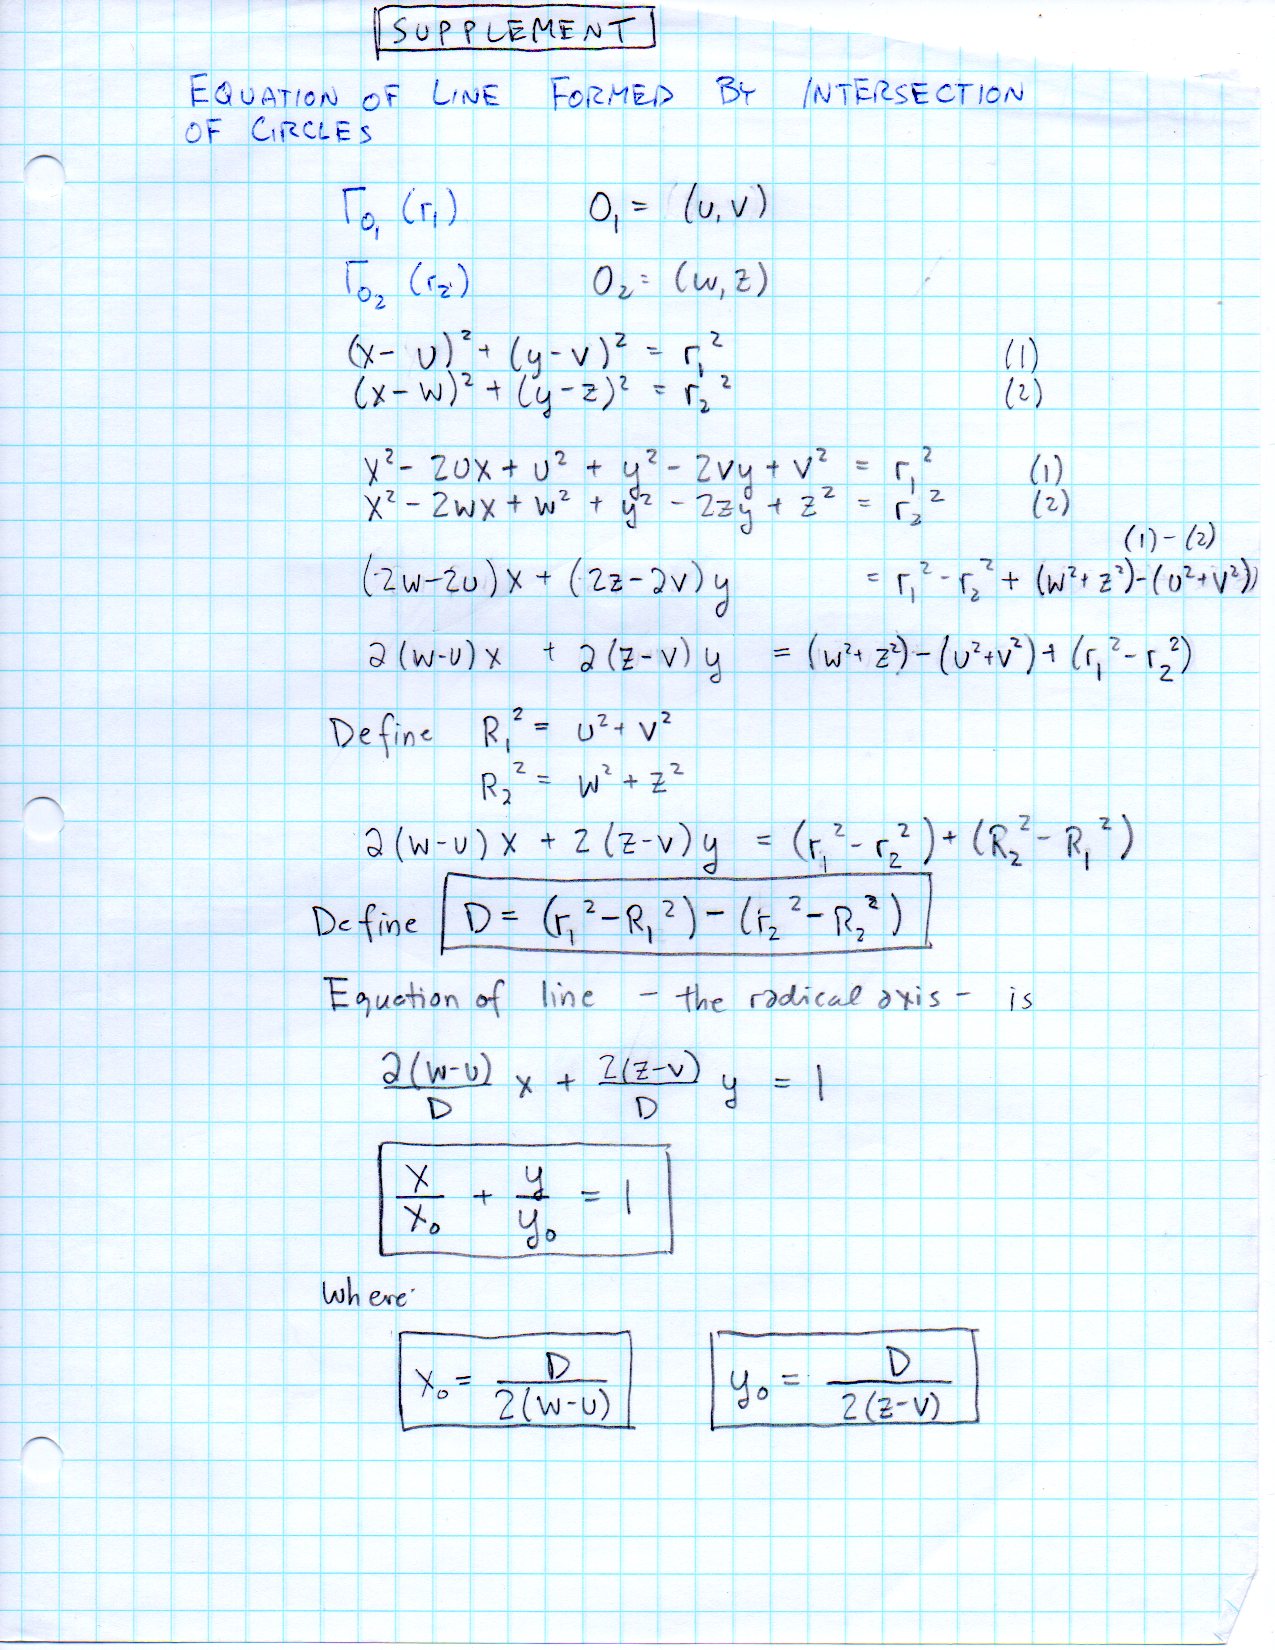 SUPPLEMENT
EQUATION OF LINE FORMED BY INTERSECTION
OF CIRCLES
Γ_{O₁} (r₁)  O₁ = (u, v)
Γ_{O₂} (r₂)  O₂ = (w, z)
(x - u)² + (y - v)² = r₁²  (1)
(x - w)² + (y - z)² = r₂²  (2)
x² - 2ux + u² + y² - 2vy + v² = r₁²  (1)
x² - 2wx + w² + y² - 2zy + z² = r₂²  (2)
(1) - (2)
(2w - 2u) x + (2z - 2v) y = r₁² - r₂² + (w² + z²) - (u² + v²))
2(w-u) x + 2(z-v) y = (w² + z²) - (u² + v²) + (r₁² - r₂²)
Define R₁² = u² + v²
R₂² = w² + z²
2(w-u) x + 2(z-v) y = (r₁² - r₂²) + (R₂² - R₁²)
Define D = (r₁² - R₁²) - (r₂² - R₂²)
Equation of line - the radical axis - is
2(w-u)/D x + 2(z-v)/D y = 1
x/x₀ + y/y₀ = 1
Where
x₀ = D/2(w-u)  y₀ = D/2(z-v)